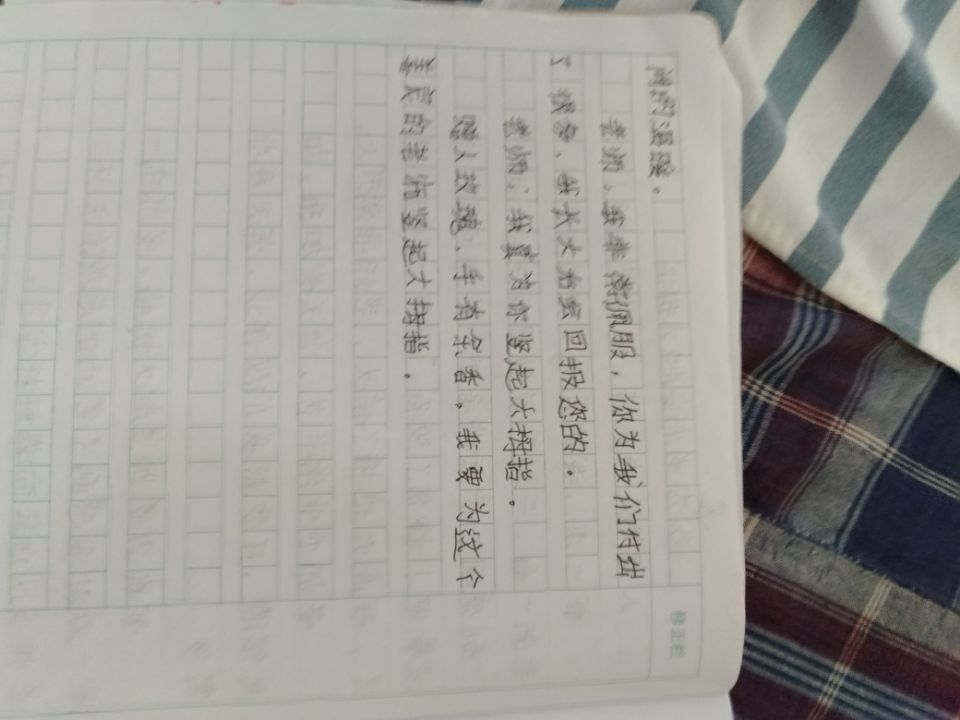 间的温暖。
老师，我非常佩服，你为我们付出
了很多，我长大后会回报您的。
老师，我要为你竖起大拇指。
赠人玫瑰、手有余香。我要为这个
善良的老师竖起大拇指。
修正栏